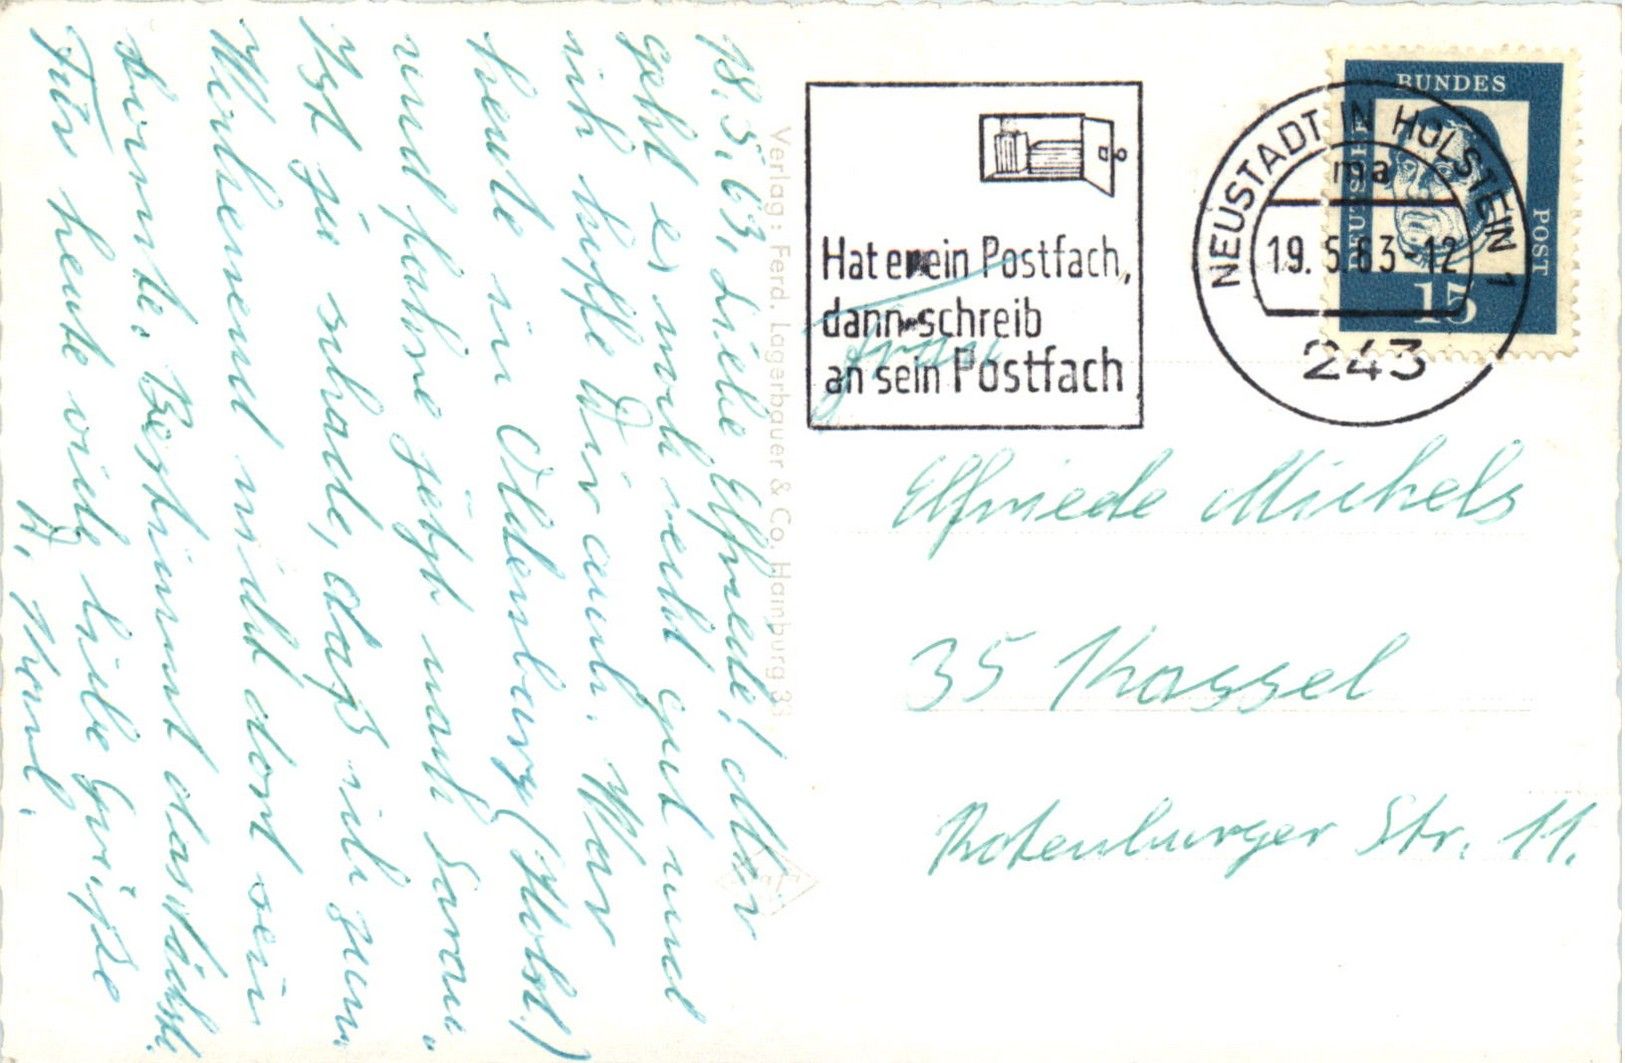 18.5.63. Liebe Elfriede! Mir
geht es noch recht gut und
ich hoffe Dir auch. War
heute in Oldenburg (Holst.)
und fahre jetzt nach Sarau.
Ist zu schade, daß ich zum
Wochenend nicht dort sein
konnte. Bestimmt das nächste.
Für heute viele liebe Grüße
D. Karl.
Verlag: Ferd. Lagerbauer & Co. Hamburg 33
Hat er ein Postfach,
dann schreib
an sein Postfach
NEUSTADT IN HOLSTEIN 1
ma
19.5.63-12
243
DEUTSCHE
BUNDES
POST
15
Frau
Elfriede Michels
35 Kassel
Rotenburger Str. 11.